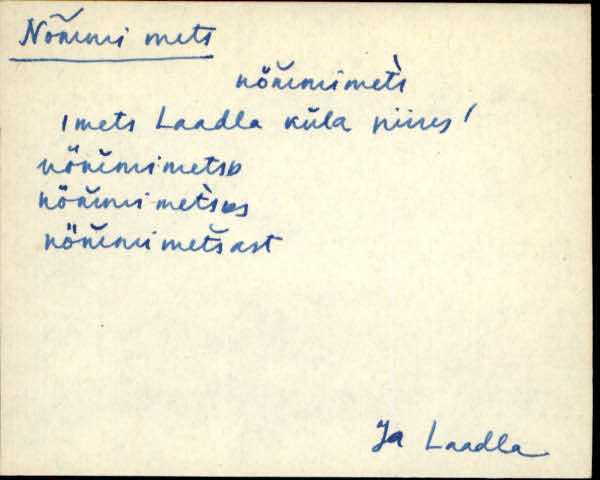 Nõmmi mets
nõm̆mimet̀s
/mets Laadla küla piires/
nõm̆mimetsᴅ
nõm̆mimet̀sᴀs
nõm̆mimet̆sast
Ja Laadla